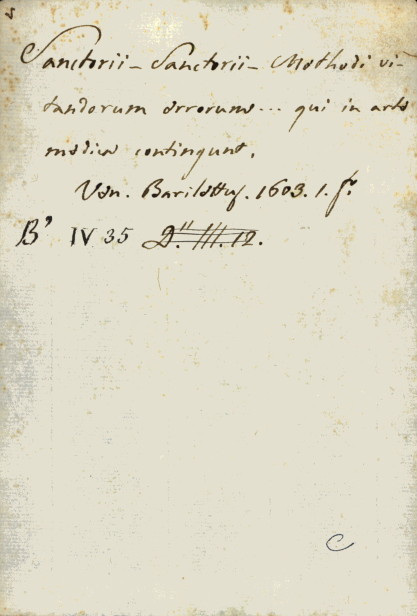 5
Sanctorii - Sanctorii - Methodi vi-
tandorum errorum ... qui in arte
medica contingunt.
Ven. Barilettus. 1603. 1. f.
B' IV 35 D." III. 12.
C